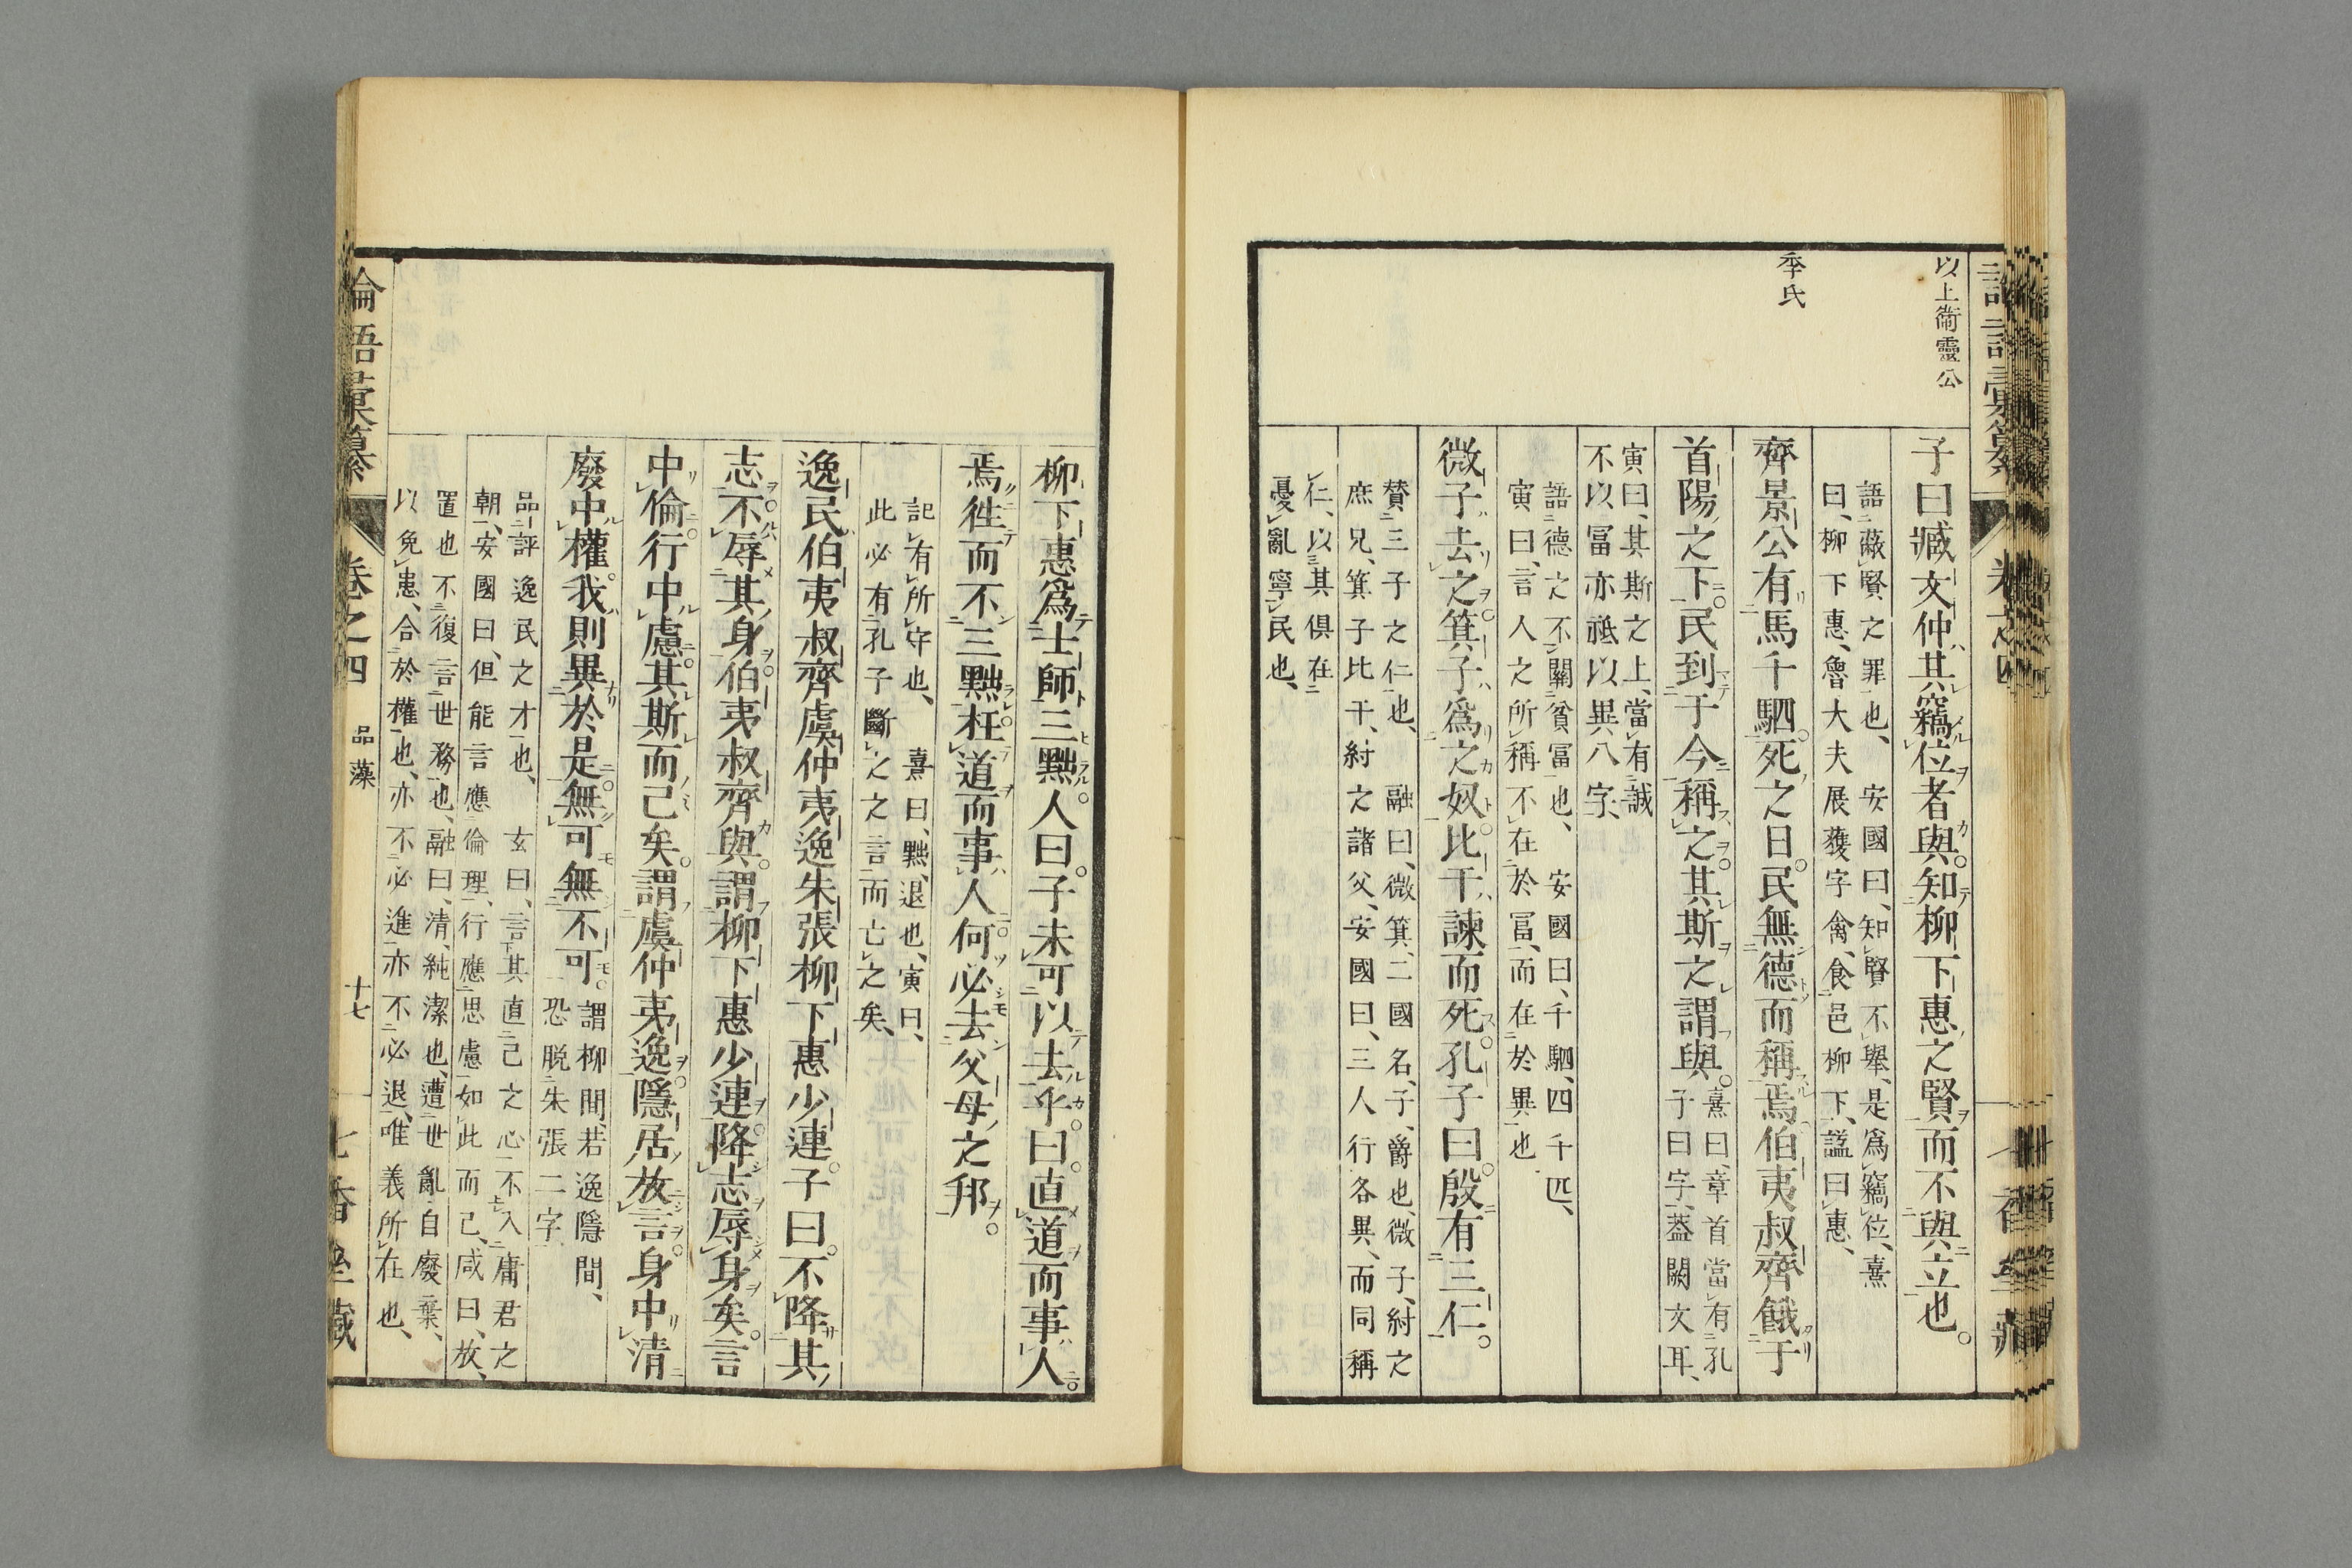 以上衛靈公
子曰臧文仲其竊位者與知柳下惠之賢而不與立也
語蔽賢之罪也、安國曰、知賢不擧、是爲竊位、熹
曰、柳下惠、魯大夫展獲字禽、食邑柳下、謚曰惠、
季氏
齊景公有馬千駟死之日民無德而稱焉伯夷叔齊餓于
首陽之下民到于今稱之其斯之謂與
熹曰、章首當有孔
子曰字、蓋闕文耳、
寅曰、其斯之上、當有誠
不以富亦祗以異八字、
語德之不關貧富也、安國曰、千駟、四千匹、
寅曰、言人之所稱不在於富、而在於異也
微子去之箕子爲之奴比干諫而死孔子曰殷有三仁
贊三子之仁也、融曰、微箕、二國名、子、爵也、微子、紂之
庶兄、箕子比干、紂之諸父、安國曰、三人行各異、而同稱
仁、以其俱在
憂亂寧民也、
柳下惠爲士師三黜人曰子未可以去乎曰直道而事人
焉徃而不三黜枉道而事人何必去父母之邦
記有所守也、熹曰、黜、退也、寅曰、
此必有孔子斷之之言而亡之矣、
逸民伯夷叔齊虞仲夷逸朱張柳下惠少連子曰不降其
志不辱其身伯夷叔齊與謂柳下惠少連降志辱身矣言
中倫行中慮其斯而已矣謂虞仲夷逸隱居放言身中清
廢中權我則異於是無可無不可
謂柳間、若逸隱間、
恐脱朱張二字
品評逸民之才也、玄曰、言其直己之心、不入庸君之
朝、安國曰、但能言應倫理、行應思慮、如此而已、咸曰、放、
置也不復言世務也、融曰、清、純潔也、遭世亂、自廢棄、
以免患、合於權也、亦不必進、亦不必退、唯義所在也、
論語彙纂
卷之四
品藻
十七